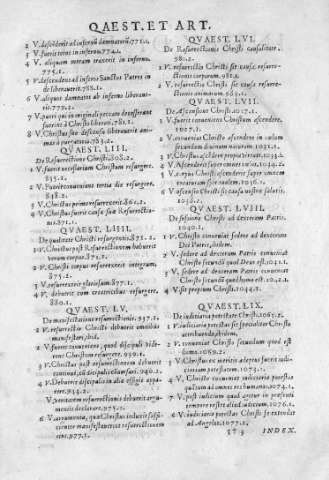 QAEST. ET ART.
2 V. descenderit ad infernũ damnatorũ. 771.1.
3 V. fuerit totus in inferno. 774.1.
4 V. aliquam moram traxerit in inferno.
775.1.
5 V. descendens ad infernũ Sanctos Patres in
de liberauerit. 788.1.
6 V. aliquos damnatos ab inferno liberaue-
rit.
7 V. pueri qui in originali peccato decesserant
fuerint à Christo liberati. 781.1.
8 V. Christus suo descensu liberauerit ani-
mas à purgatorio. 783.2.
QVAEST. LIII.
De Resurrectione Christi. 808.2.
1 V. fuerit necessarium Christum resurgere.
835.2.
2 V. fuerit conueniens tertia die resurgere.
838.2.
3 V. Christus primo resurrexerit. 861.2.
4 V. Christus fuerit causa suæ Resurrectio-
nis. 871.1.
QVAEST. LIIII.
De qualitate Christi resurgentis. 871.2.
1 V. Christus post Resurrectionem habuerit
verum corpus. 872.1.
2 V. Christi corpus resurrexerit integrum.
875.2.
3 V. resurrexerit gloriosum. 877.1.
4 V. debuerit cum cicatricibus resurgere.
880.1.
QVAEST. LV.
De manifestatione resurrectionis. 937.1.
1 V. resurrectio Christi debuerit omnibus
manifestari.
2 V. fuerit conueniens, quod discipuli vide-
rent Christum resurgere. 939.1.
3 V. Christus post resurrectionem debuerit
continuè cũ discipulis conuersari. 940.1.
4 V. Debuerit discipulis in alia effigie appare-
re. 942.2.
5 V. veritatem resurrectionis debuerit argu-
mentis declarare. 973.1.
6 V. argumenta, quæ Christus induxit suffi-
cienter manifestauerint resurrectionem
eius. 977.1.
QVAEST. LVI.
De Resurrectionis Christi causalitate.
981.1.
1 V. resurrectio Christi sit causa resurre-
ctionis corporum. 981.1.
2 V. resurrectio Christi sit causa resurre-
ctionis animarum. 985.1.
QVAEST. LVII.
De Ascensione Christi. 1017.1.
1 V. fuerit conueniens Christum ascendere.
1027.1.
2 V. conuenerit Christo ascendere in cælum
secundum diuinam naturam. 1031.1.
3 V. Christus ascenderit propria virtute. 1033.2.
4 V. ascenderit super omnes cælos. 1034.2.
5 V. corpus Christi ascenderit super omnem
creaturam spiritualem. 1036.1.
6 V. ascensio Christi sit causa nostræ salutis.
1038.1.
QVAEST. LVIII.
De sessione Christi ad dexteram Patris.
1040.1.
1 V. Christo conueniat sedere ad dexteram
Dei Patris, ibidem.
2 V. sedere ad dexteram Patris conueniat
Christo secundũ quod Deus est. 1041.1.
3 V. sedere ad dexteram Patris conueniat
Christo secundũ quod homo est. 1042.1.
4 V. sit proprium Christi. 1044.2.
QVAEST. LIX.
De iudiciaria potestate Christi. 1065.2.
1 V. iudiciaria potestas sit specialiter Christo
attribuenda, ibidem.
2 V. conueniat Christo secundum quod est
homo. 1069.2.
3 V. Christus ex meritis adeptus fuerit iudi-
ciariam potestatem. 1073.1.
4 V. Christo conueniat iudiciaria potestas
quo ad omnes res humanas. 1074.1.
5 V. post iudicium quod agitur in præsenti
tempore restet aliud iudicium. 1076.1.
6 V. iudiciaria potestas Christi se extendat
ad Angelos. 1077.2.
INDEX.